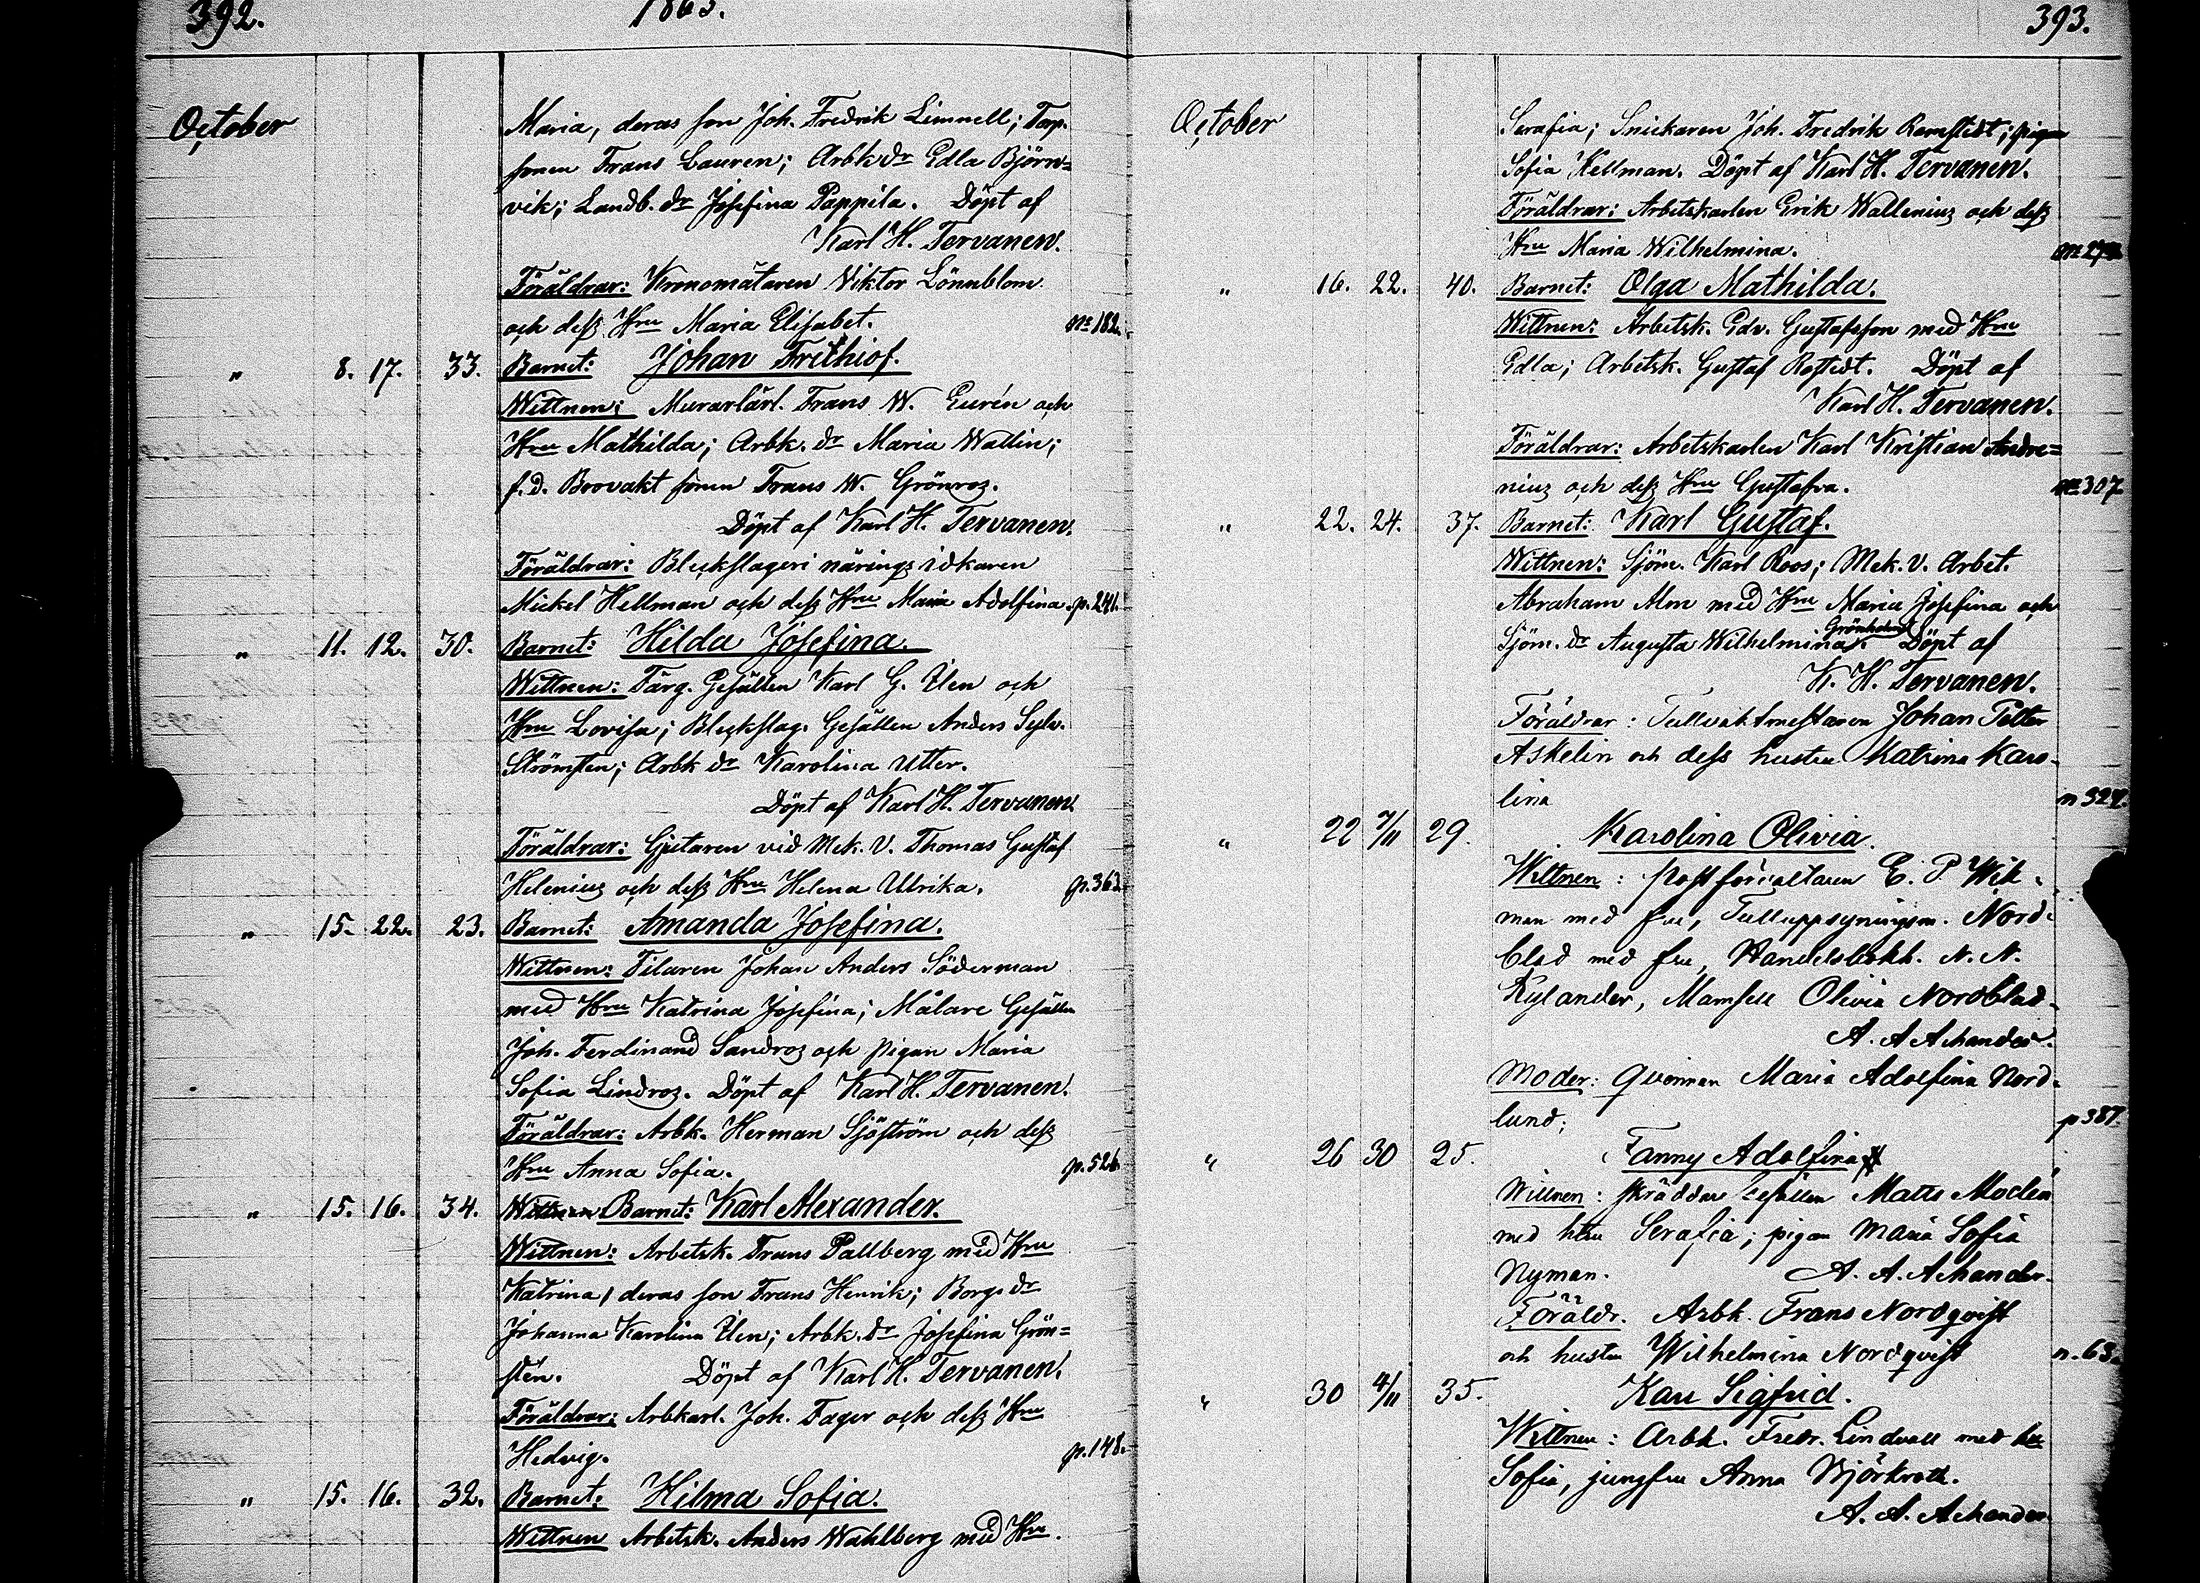 392.
1865.
October
Maria, deras son Joh. Fredrik Limnell; Torp.
sonen Frans Lauren; Arbk dr Edla Björn=
vik; Landb. dr Josefina Pappila. Döpt af
Karl H. Tervanen.
Föräldrar: Kronomätaren Viktor Lönnblom
och dess Hru Maria Elisabet. n. 182.
" 8. 17. 33. Barnet: Johan Frithiof.
Wittnen: Murarlärl. Frans W. Eurén och
Hru Mathilda; Arbk. dr Maria Wallin;
f.d. Brovakt sonen Frans W. Grönros.
Döpt af Karl H. Tervanen.
Föräldrar: Bleckslageri närings idkaren
Mickel Hellman och dess Hru Maria Adolfina. p. 241.
" 11. 12. 30. Barnet: Hilda Josefina.
Wittnen: Färg. Gesällen Karl G. Ulen och
Hru Lovisa; Bleckslag. Gesällen Anders Sylv.
Strömsten; Arbk dr Karolina Utter.
Döpt af Karl H. Tervanen
Föräldrar: Gjutaren vid Mek. V. Thomas Gustaf
Helenius och dess Hru Helena Ulrika. p. 363.
" 15. 22. 23. Barnet: Amanda Josefina.
Wittnen: Filaren Johan Anders Söderman
med Hru Katrina Josefina; Målare Gesällen
Joh. Ferdinand Sandros och pigan Maria
Sofia Lindros. Döpt af Karl H. Tervanen.
Föräldrar: Arbk. Herman Sjöström och dess
Hru Anna Sofia. p. 526.
" 15. 16. 34. Wittnen Barnet: Karl Alexander.
Wittnen: Arbetsk. Frans Pallberg med Hru
Katrina, deras son Frans Henrik; Borgs dr
Johanna Karolina Ulen; Arbk. dr Josefina Grön=
stén. Döpt af Karl H. Tervanen.
Föräldrar: Arbkarl. Joh. Fager och dess Hru
Hedvig. p. 148.
" 15. 16. 32. Barnet: Hilma Sofia.
Wittnen Arbetsk. Anders Wahlberg med Hru.
393.
October
Serafia; Snickaren Joh. Fredrik Ramstedt; pigan
Sofia Hellman. Döpt af Karl H. Tervanen.
Föräldrar: Arbetskarlen Erik Wallenius och dess
Hru Maria Wilhelmina.
" 16. 22. 40. Barnet: Olga Mathilda.
Wittnen: Arbetsk. Edv. Gustafsson med Hru
Edla; Arbetsk. Gustaf Rostedt. Döpt af
Karl H. Tervanen.
Föräldrar: Arbetskarlen Karl Kristian Andre=
nius och dess Hru Gustafva. n. 307
" 22. 24. 37. Barnet: Karl Gustaf.
Wittnen: Sjöm. Karl Roos; Mek. V. Arbet.
Abraham Alm med Hru Maria Josefina och
Grönholm
Sjöm. dr Augusta Wilhelmina. Döpt af
K. H. Tervanen.
Föräldrar: Tullvaktmestaren Johan Petter
Askelin och dess hustru Katrina Karo-
lina n 324.
" 22 7/11 29. Karolina Olivia.
Wittnen: postförvaltaren E. P Wik-
man med fru, Tulluppsyningsm. Nord-
blad med fru, Handelsbokh. N. N.
Rylander, Mamsell Olivia Nordblad.
A. A Achander.
Moder: Qvinnan Maria Adolfina Nord-
lund; p 387.
" 26 30 25. Fanny Adolfina
Wittnen: skräddare Gesällen Matts Modén
med hru Serafia; pigan Maria Sofia
Nyman. A. A. Achander.
Föräldr. Arbk. Frans Nordqvist
och hustru Wilhelmina Nordqvist n. 63.
" 30 4/11 35. Karl Sigfrid.
Wittnen: Arbk. Fredr. Lindvall med hru
Sofia, jungfru Anna Björkroth.
A. A. Achander